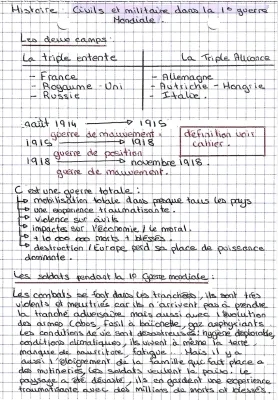 Histoire : Civils et militaire dans la 1e guerre
Mondiale.
Les deux camps :
La triple entente
La Triple Alliance
- France
- Royaume-Uni
- Russie
- Allemagne
- Autriche-Hongrie
- Italie.
août 1914 → 1915
guerre de mouvement.
1915 → 1918
guerre de position
1918 → novembre 1918.
guerre de mouvement.
définition voir
cahier.
C est une guerre totale :
mobilisation totale dans presque tous les pays
une expérience traumatisante.
violence sur civils
impactes sur l'économie / le moral.
+ 10 000 000 morts + blessés.
destruction l'Europe perd sa place de puissance
dominante.
Les soldats pendant la 1e Guerre mondiale :
Les combats se font dans les tranchées, ils sont très
violents et meutriers car ils n'arrivent pas à prendre
la tranché adversaire mais aussi avec l'évolution
des armes (obus, fusil à baïonette, gaz asphyxiants
Les conditions de vie sont désastreuses : hygiène déplorable,
conditions climatiques, ils vivent à même la terre,
manque de nourriture, fatigue. Mais il y a
aussi l'éloignement de la famille qui fait place a
des mutineries, les soldats veulent la paix. Le
paysage a été dévasté, ils en gardent une expérience
traumatisante avec des millions de morts et blessés.